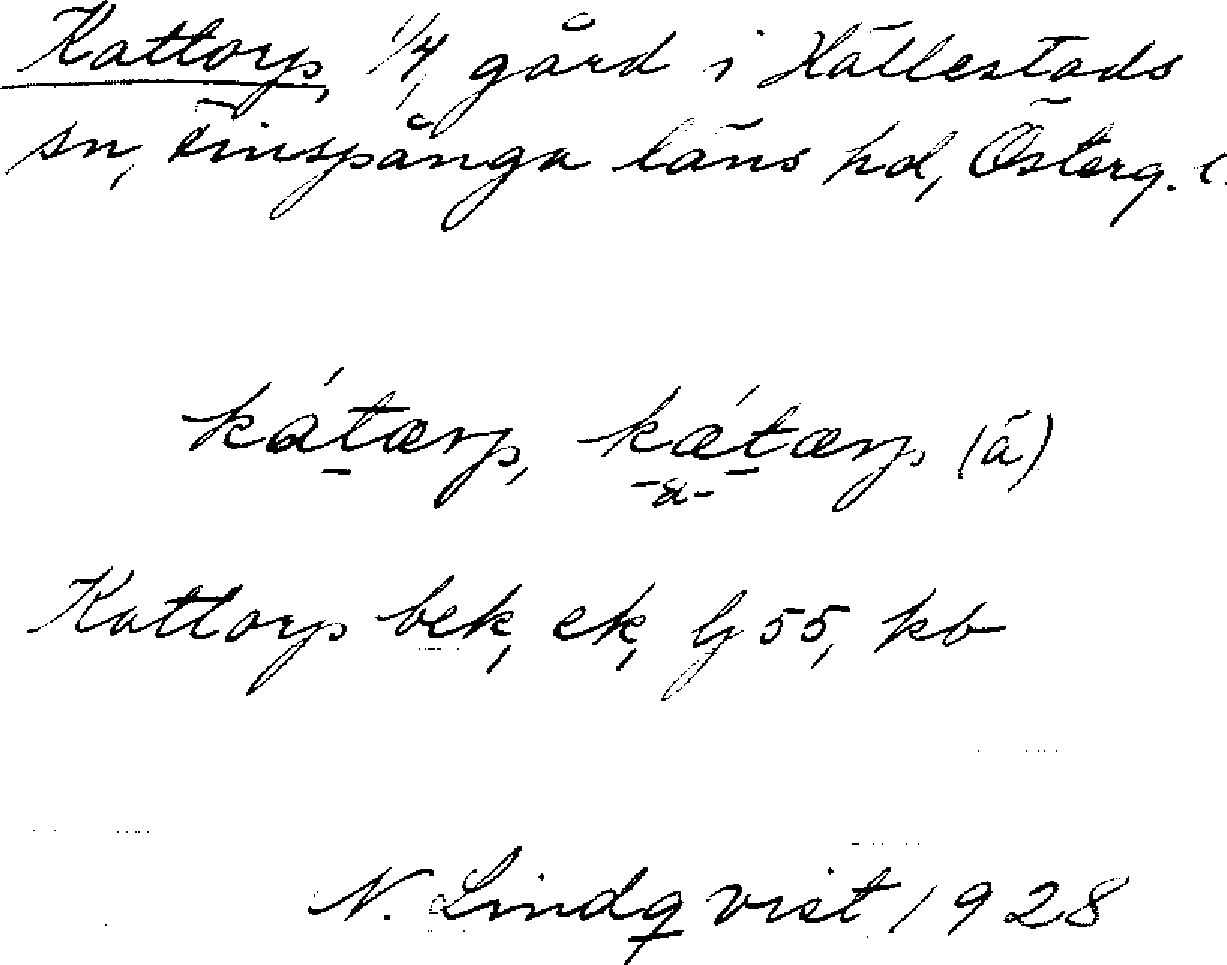 Kattorp 1/4, gård i Hällestads
sn, Finspånga läns hd, Österg. l.
kátærp, kátærp (ā)
-a-
Kattorp bek, ek, lj 55, kb
N. Lindqvist 1928